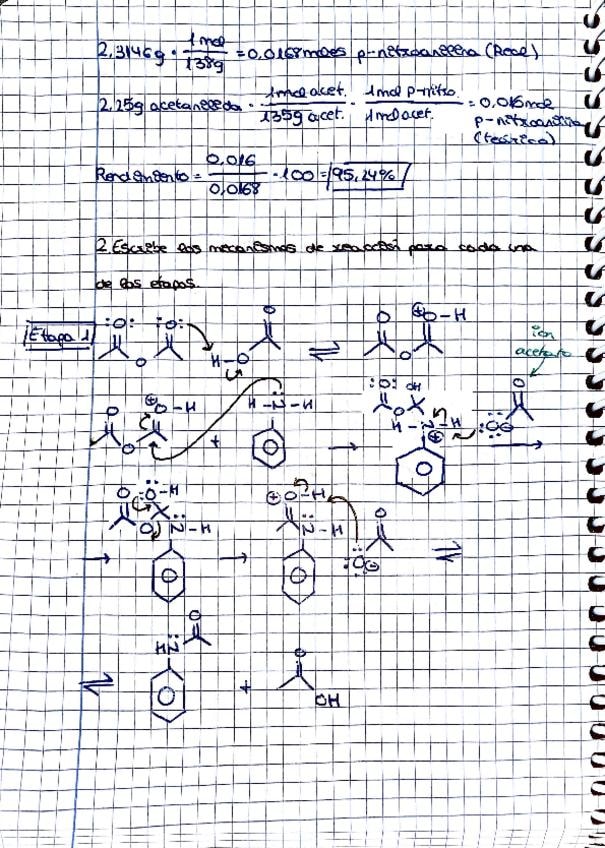 2,3146g · 1mol / 138g = 0,0168moles p-nitroanilina (Real)
2,25g acetanilida · 1mol acet. / 135g acet. · 1mol p-nitro. / 1mol acet. = 0,016mol p-nitroanilina (teórico)
Rendimiento = 0,016 / 0,0168 · 100 = 95,24%
2. Escribe los mecanismos de reacción para cada una
de los etapas.
Etapa 1
:O: :O: O H-O ⇌ O O ⊕O-H
ion
acetato
O ⊕O-H O + H-N-H → :O: OH O H-N-H ⊕ :O⊖ O →
→ O :O-H O N-H → ⊕O-H N-H :O⊖ O ⇌
⇌ HN O + O OH